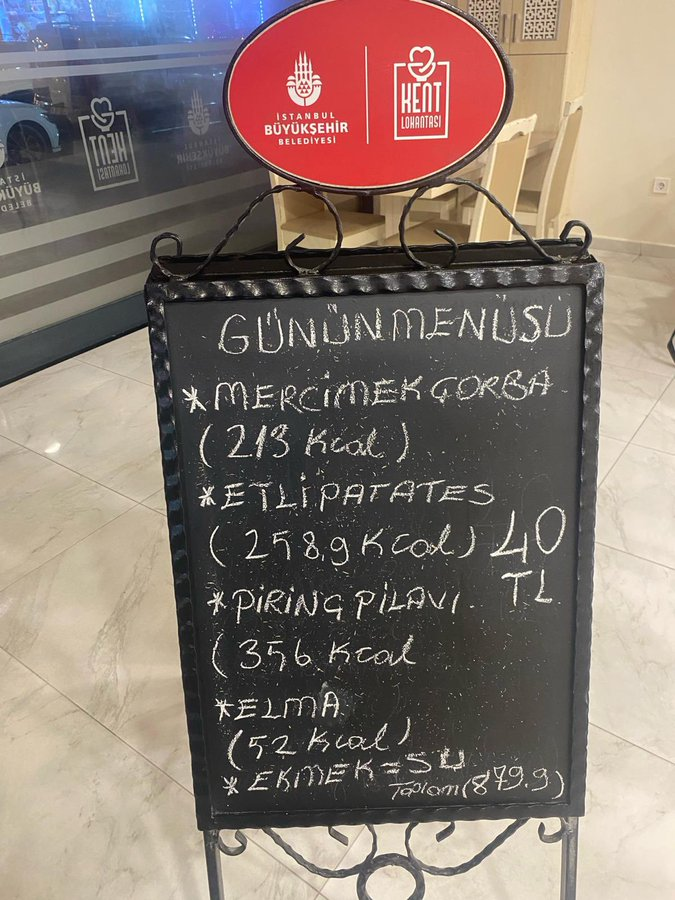 İSTANBUL
BÜYÜKŞEHİR
BELEDİYESİ
KENT
LOKANTASI
KENT
LOKANTASI
GÜNÜN MENÜSÜ
*MERCİMEK ÇORBA
(213 Kcal)
*ETLİ PATATES
(258.9 Kcal) 40
TL
*PİRİNÇ PİLAVI
(356 Kcal
*ELMA
(52 Kcal)
*EKMEK=SU
Toplam (879.9)